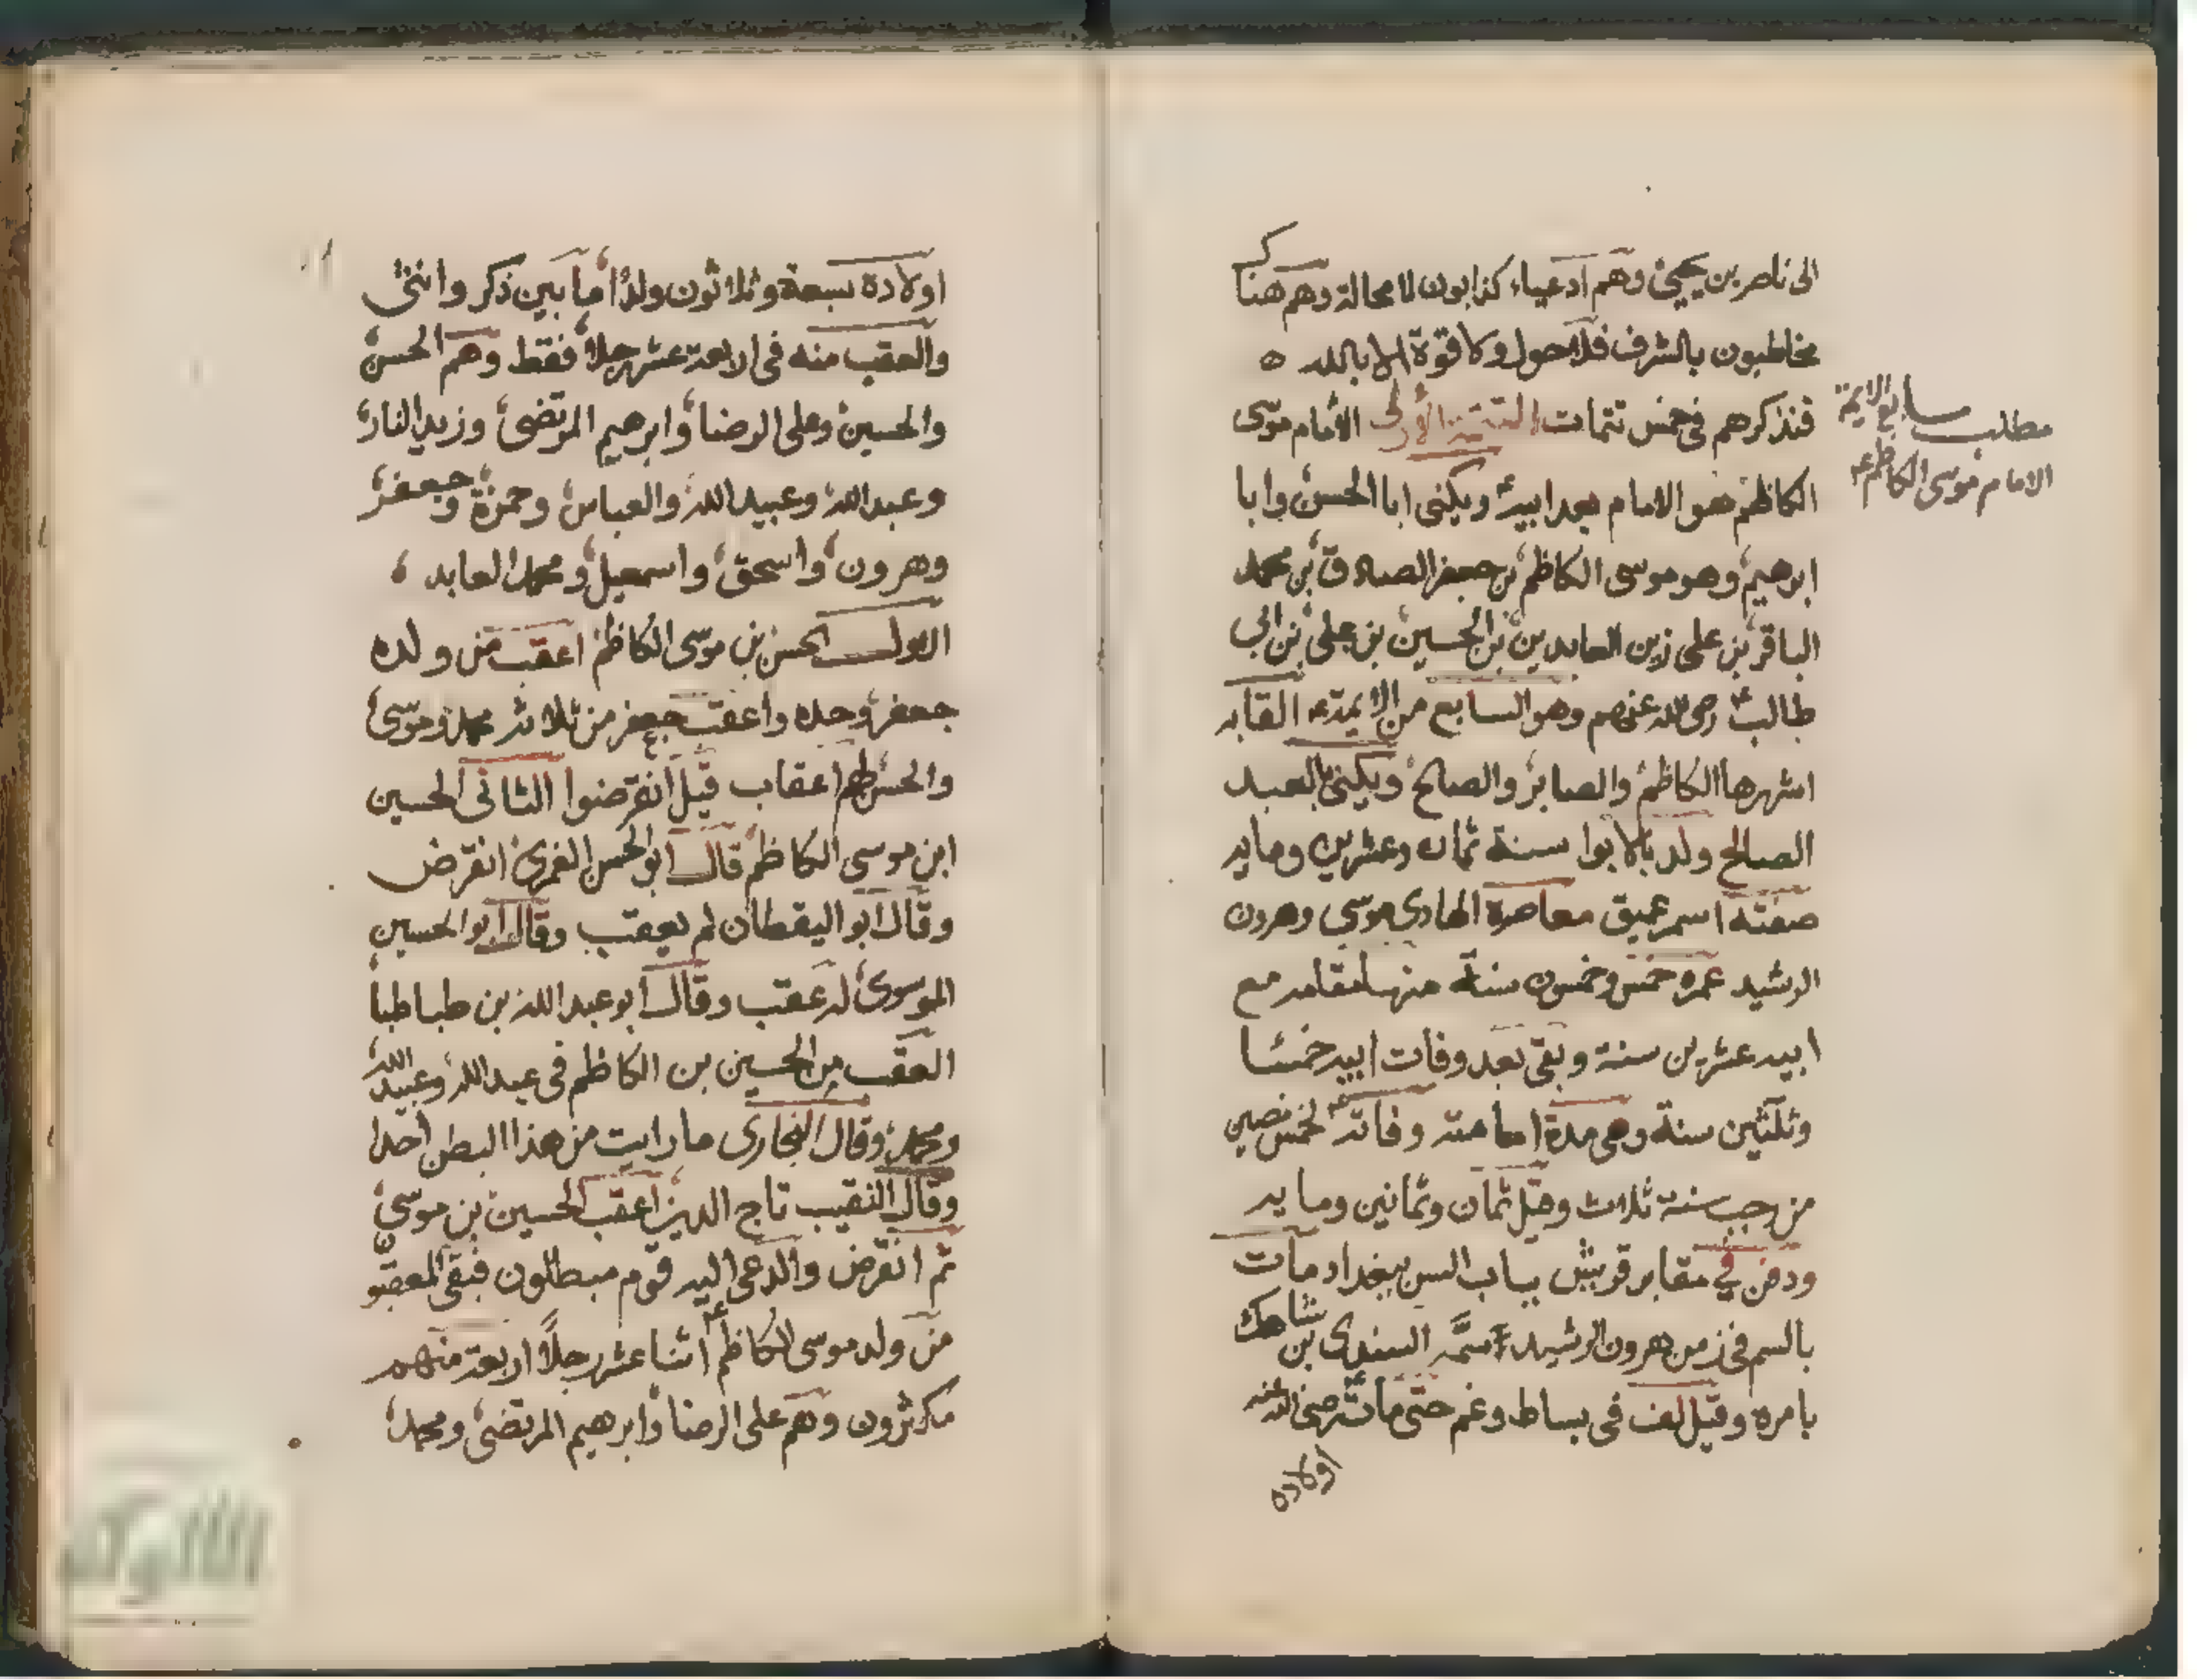 الى ناصر بن يحيى وهم ادعياء كذابون لا محالة وهم هناك
مخاطبون بالشرف فلا حول ولا قوة الا بالله ه
فنذكرهم في خمس تتمات التتمة الأولى الامام موسى
مطلب سابع الايمة
الامام موسى الكاظم
الكاظم هو الامام بعد ابيه ويكنى ابا الحسن وابا
ابرهيم وهو موسى الكاظم بن جعفر الصادق بن محمد
الباقر بن علي زين العابدين بن الحسين بن علي بن ابي
طالب رضي الله عنهم وهو السابع من الايمة القابه
اشهرها الكاظم والصابر والصالح ويكنى بالعبد
الصالح ولد بالابوا سنة ثمان وعشرين ومايه
صفته اسمر عميق معاصره الهادي موسى وهرون
الرشيد عمره خمس وخمسون سنة منها مقامه مع
ابيه عشرين سنة وبقى بعد وفات ابيه خمسا
وثلثين سنة وهي مدة امامته وفاته لخمس
من رجب سنة ثلاث وقيل ثمان وثمانين ومايه
ودفن في مقابر قريش بباب ببغداد مات
بالسم في زمن هرون الرشيد سمه السندى بن شاهك
بامره وقيل لف في بساط وغم حتى مات رضي الله عنه
اولاده
اولاده سبعة وثلاثون ولدا ما بين ذكر وانثى
والعقب منه في اربعة عشر رجلا فقط وهم الحسن
والحسين وعلى الرضا وابرهيم المرتضى وزيد النار
وعبد الله وعبيد الله والعباس وحمزة وجعفر
وهرون واسحق واسمعيل ومحمد العابد
الاول الحسن بن موسى الكاظم اعقب من ولده
جعفر وحده واعقب جعفر من ثلاثة محمد وموسى
والحسن لهم اعقاب قيل انقرضوا الثاني الحسين
ابن موسى الكاظم قال ابو الحسن العمرى انقرض
وقال ابو اليقطان لم يعقب وقال ابو الحسين
الموسوى له عقب وقال ابو عبد الله بن طباطبا
العقب من الحسين بن الكاظم في عبد الله وعبيد الله
ومحمد وقال البخارى ما رايت من هذا البطن احدا
وقال النقيب تاج الدين اعقب الحسين بن موسى
ثم انقرض وادعى اليه قوم مبطلون فبقى المعقبو
من ولد موسى الكاظم اثنا عشر رجلا اربعة منهم
مكثرون وهم على الرضا وابرهيم المرتضى ومحمد
الألوكة